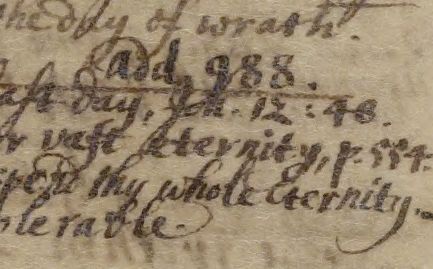 the day of wrath.
Add. 988.
last day, Joh. 12:48.
or vast eternity, p. 554.
thy whole eternity.
lerable.